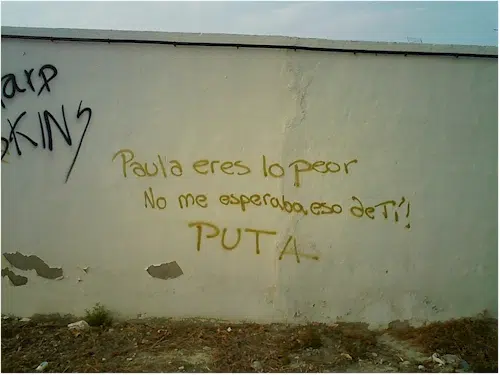 arp
KINS
Paula eres lo peor
No me esperaba, eso de Tí!
PUTA.